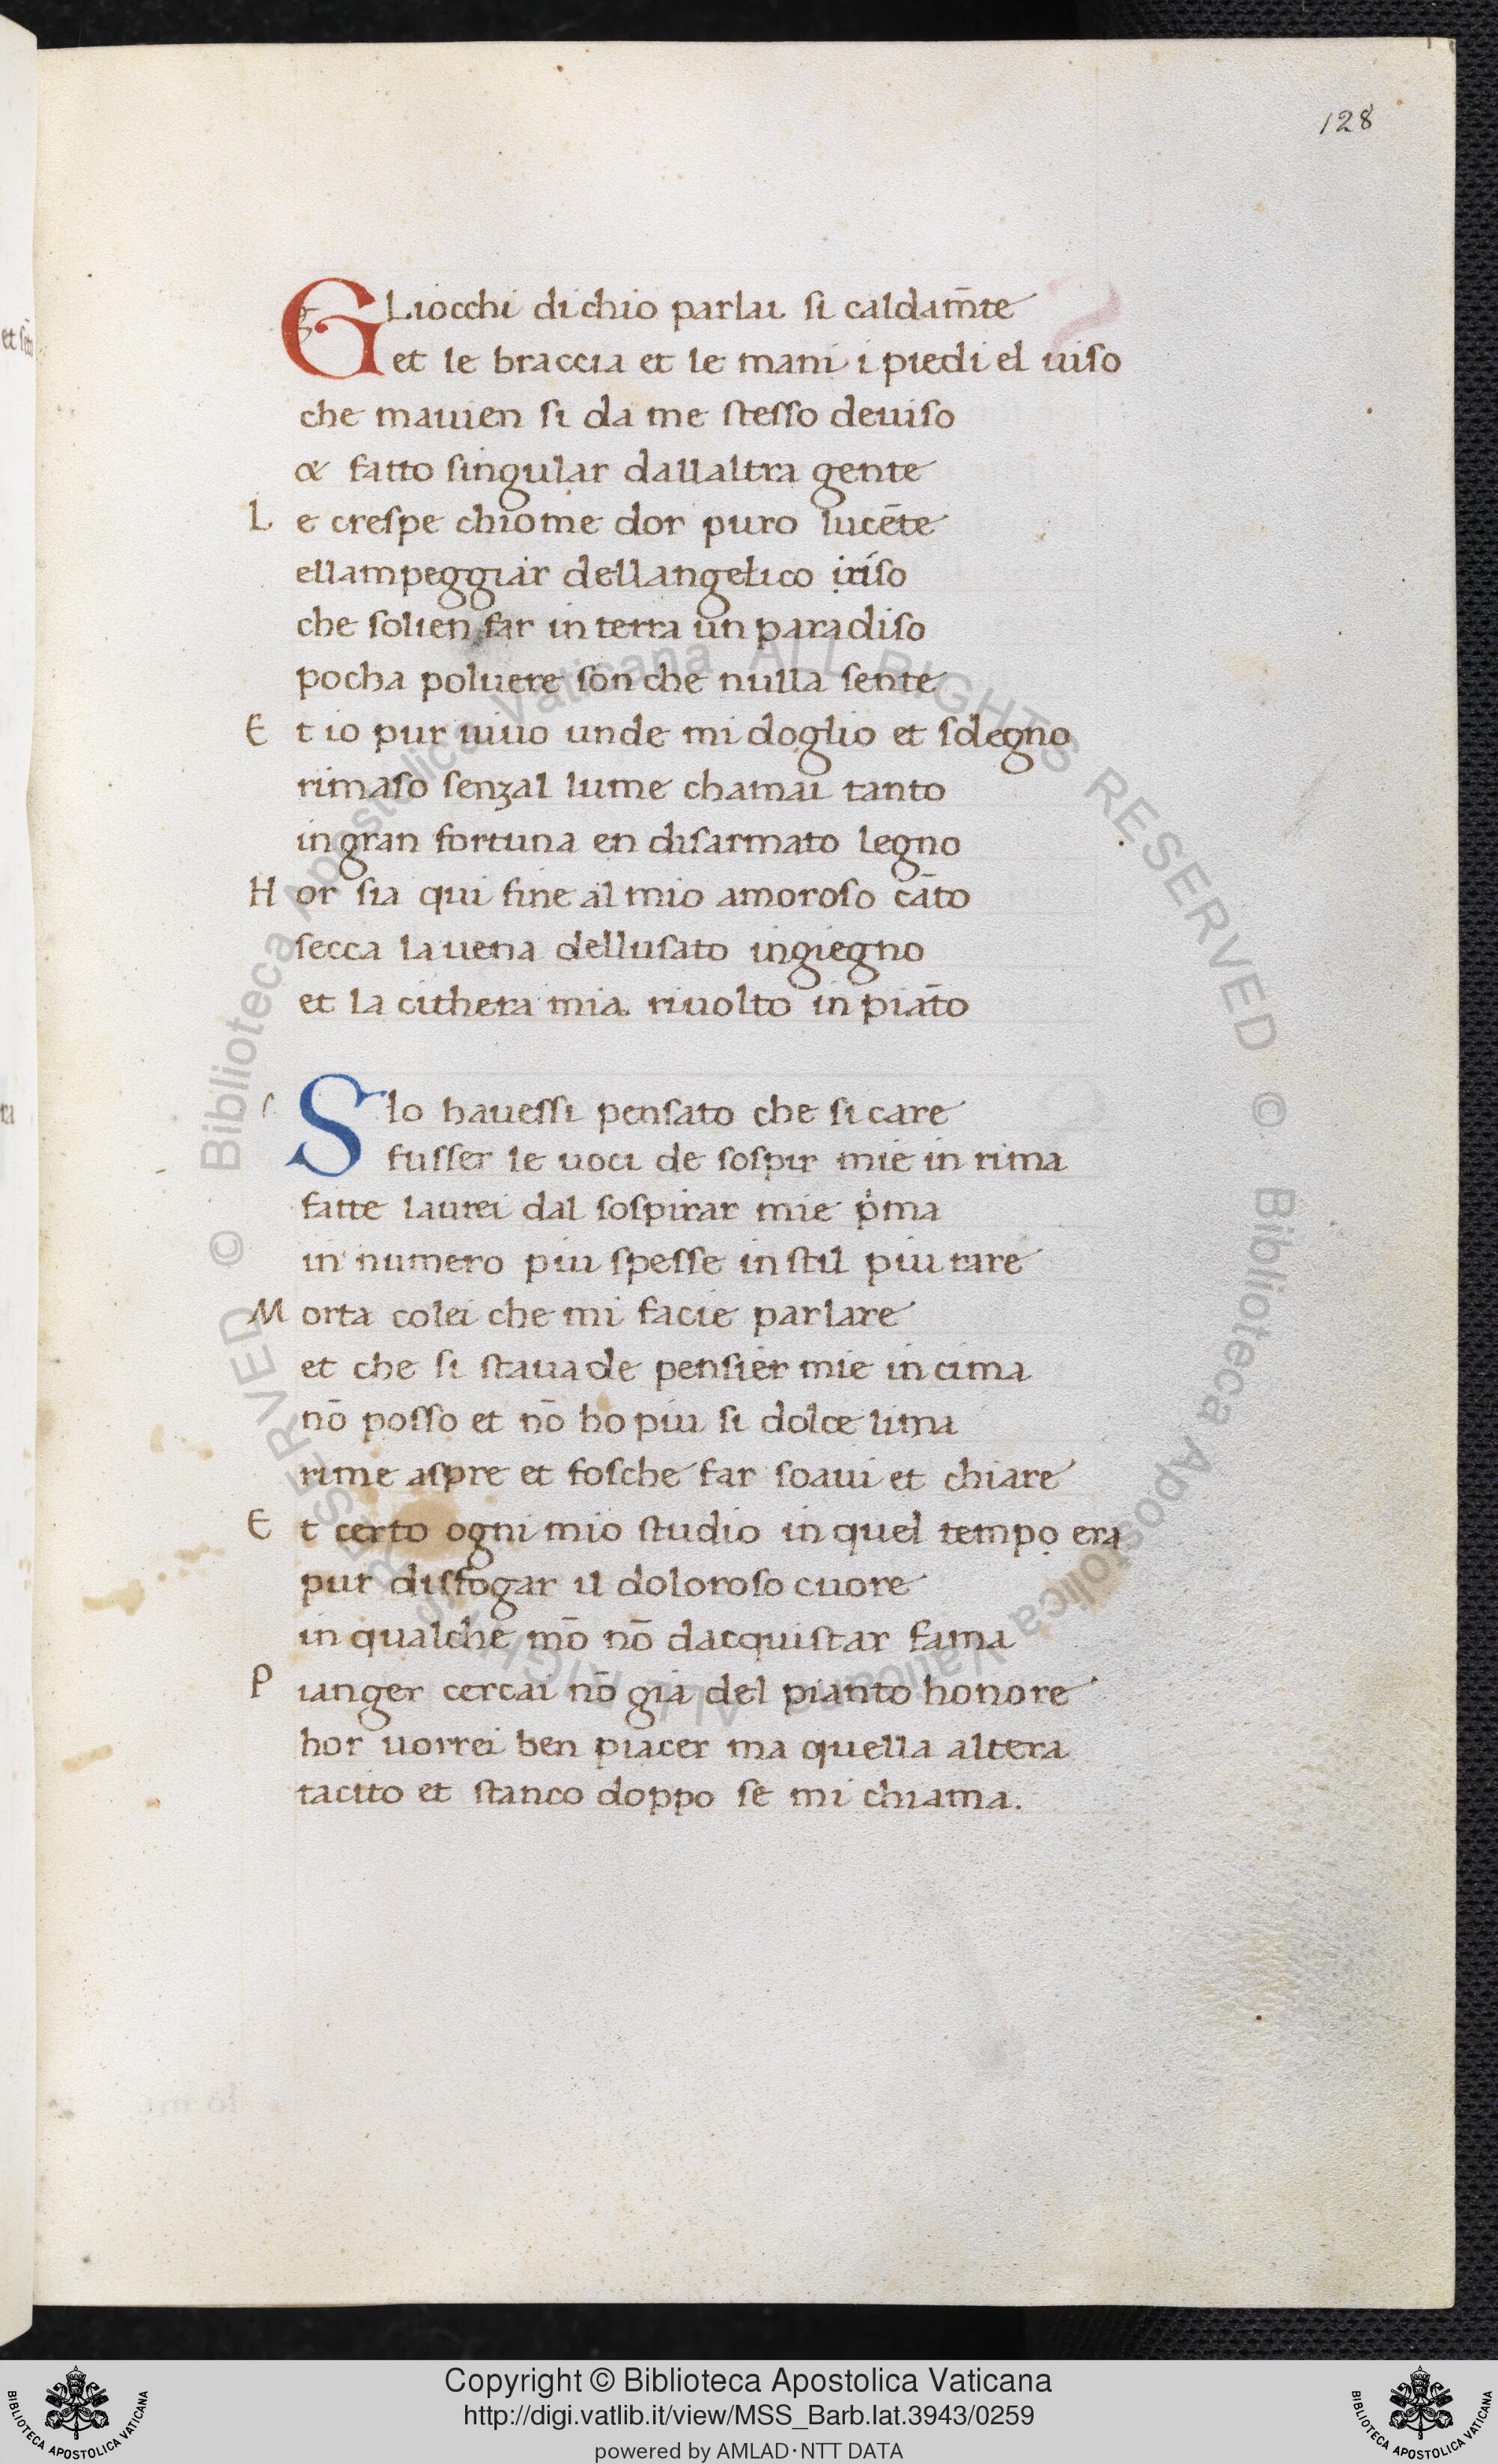 128
GLiocchi dichio parlai si caldam̄te
et le braccia et le mani i piedi el uiso
che mauien si da me stesso deuiso
& fatto singular dallaltra gente
L e crespe chiome dor puro lucēte
ellampeggiar dellangelico iriso
che solien far in terra un paradiso
pocha poluere son che nulla sente
E t io pur uiuo unde mi doglio et sdegno
rimaso senzal lume chamai tanto
in gran fortuna en disarmato legno
H or sia qui fine al mio amoroso cāto
secca la uena dellusato ingiegno
et la cithera mia riuolto in piāto
S Io hauessi pensato che si care
fusser le uoci de sospir mie in rima
fatte laurei dal sospirar mie p̓ma
in numero piu spesse in stil piu rare
M orta colei che mi facie parlare
et che si staua de pensier mie in cima
nō posso et nō ho piu si dolce lima
rime aspre et fosche far soaui et chiare
E t certo ogni mio studio in quel tempo era
pur disfogar il doloroso cuore
in qualche mō nō dacquistar fama
P ianger cercai nō gia del pianto honore
hor uorrei ben piacer ma quella altera
tacito et stanco doppo se mi chiama.
Copyright © Biblioteca Apostolica Vaticana
http://digi.vatlib.it/view/MSS_Barb.lat.3943/0259
powered by AMLAD·NTT DATA